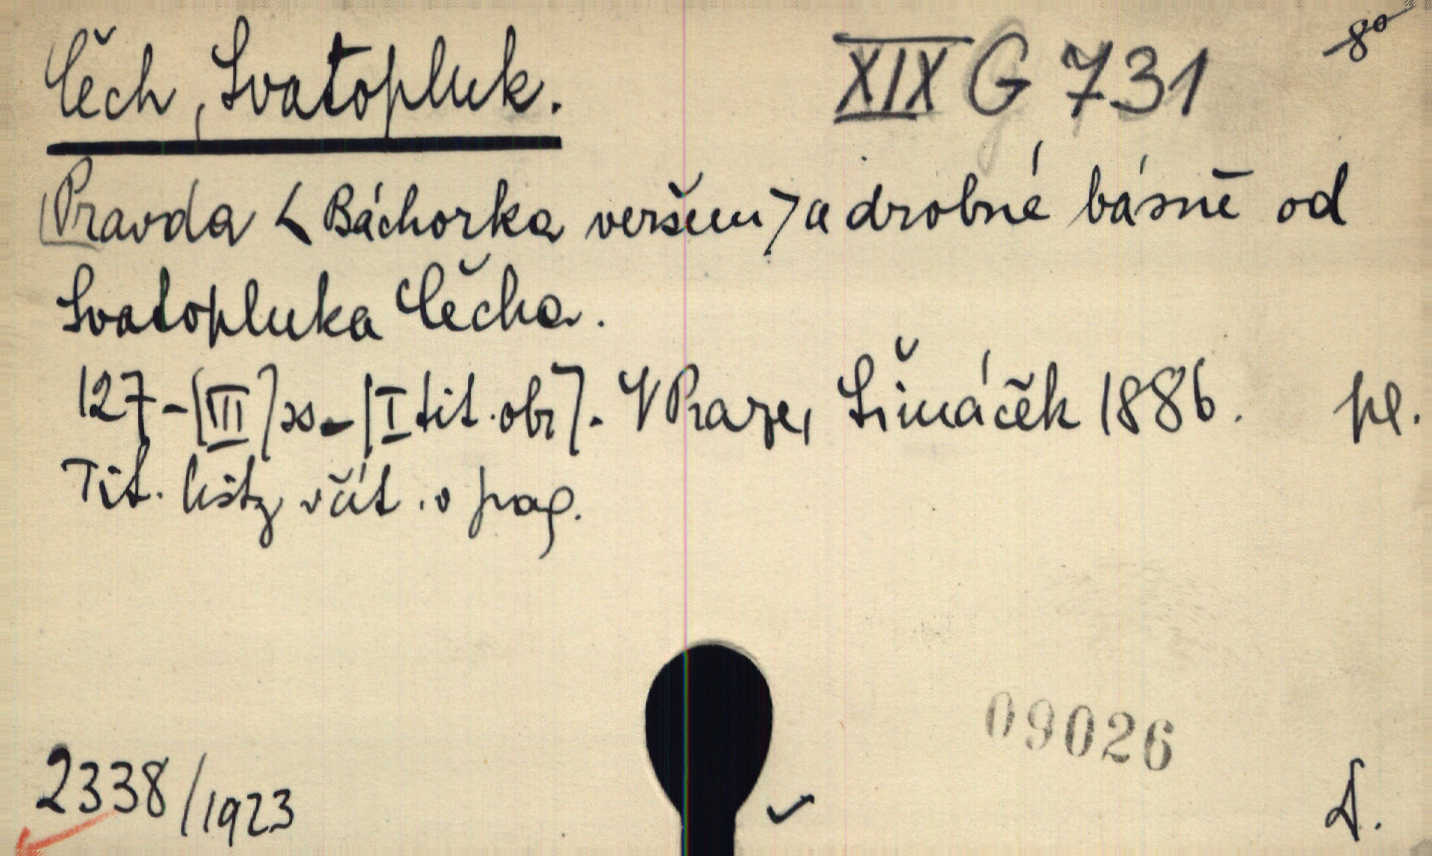 Čech, Svatopluk.
XIX G 731
8°
Pravda < Báchorka veršem > a drobné básně od
Svatopluka Čecha.
127-[III] ss-[I tit. obr]. V Praze, Šimáček 1886. pl.
Tit. listy včít. v pag.
09026
2338/1923